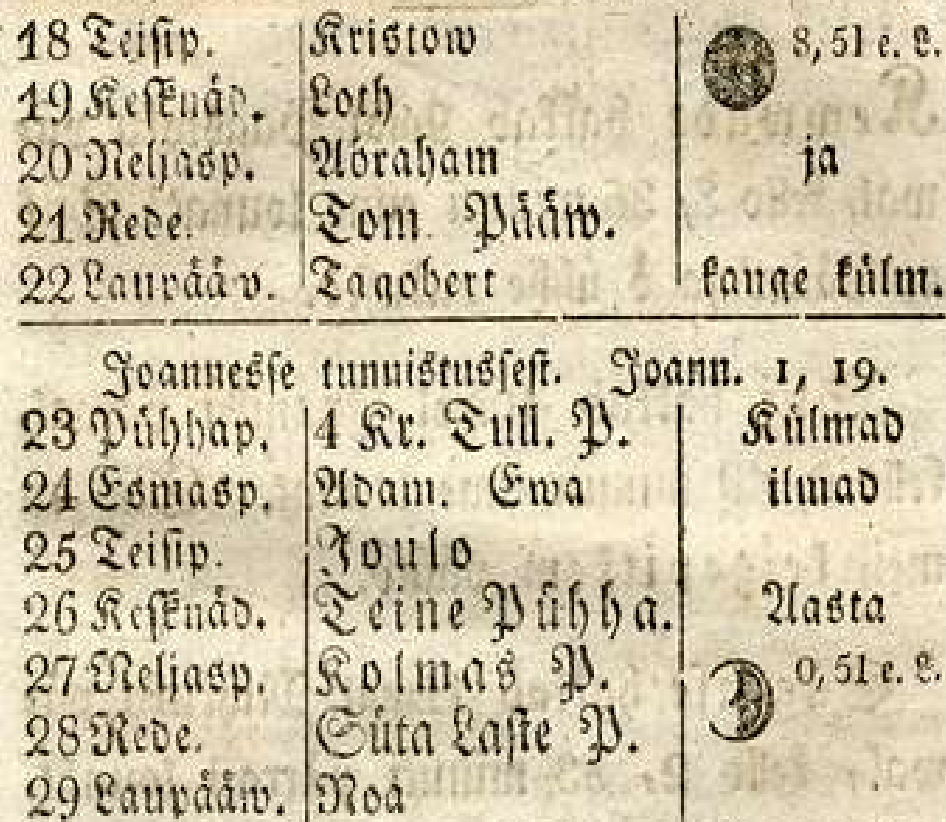 18 Teisip. Kristow 8, 51 e. L.
19 Kesknäd. Loth
20 Neljasp. Abraham ja
21 Rede. Tom. Pääw.
22 Laupääw. Tagobert kange külm.
Joannesse tunnistussest. Joann. 1, 19.
23 Pühhap. 4 Kr. Tull. P. Külmad
24 Esmasp. Adam. Ewa ilmad
25 Teisip. Joulo
26 Kesknäd. Teine Pühha. Aasta
27 Neljasp. Kolmas P. 0, 51 e. L.
28 Rede. Süta Laste P.
29 Laupääw. Noa